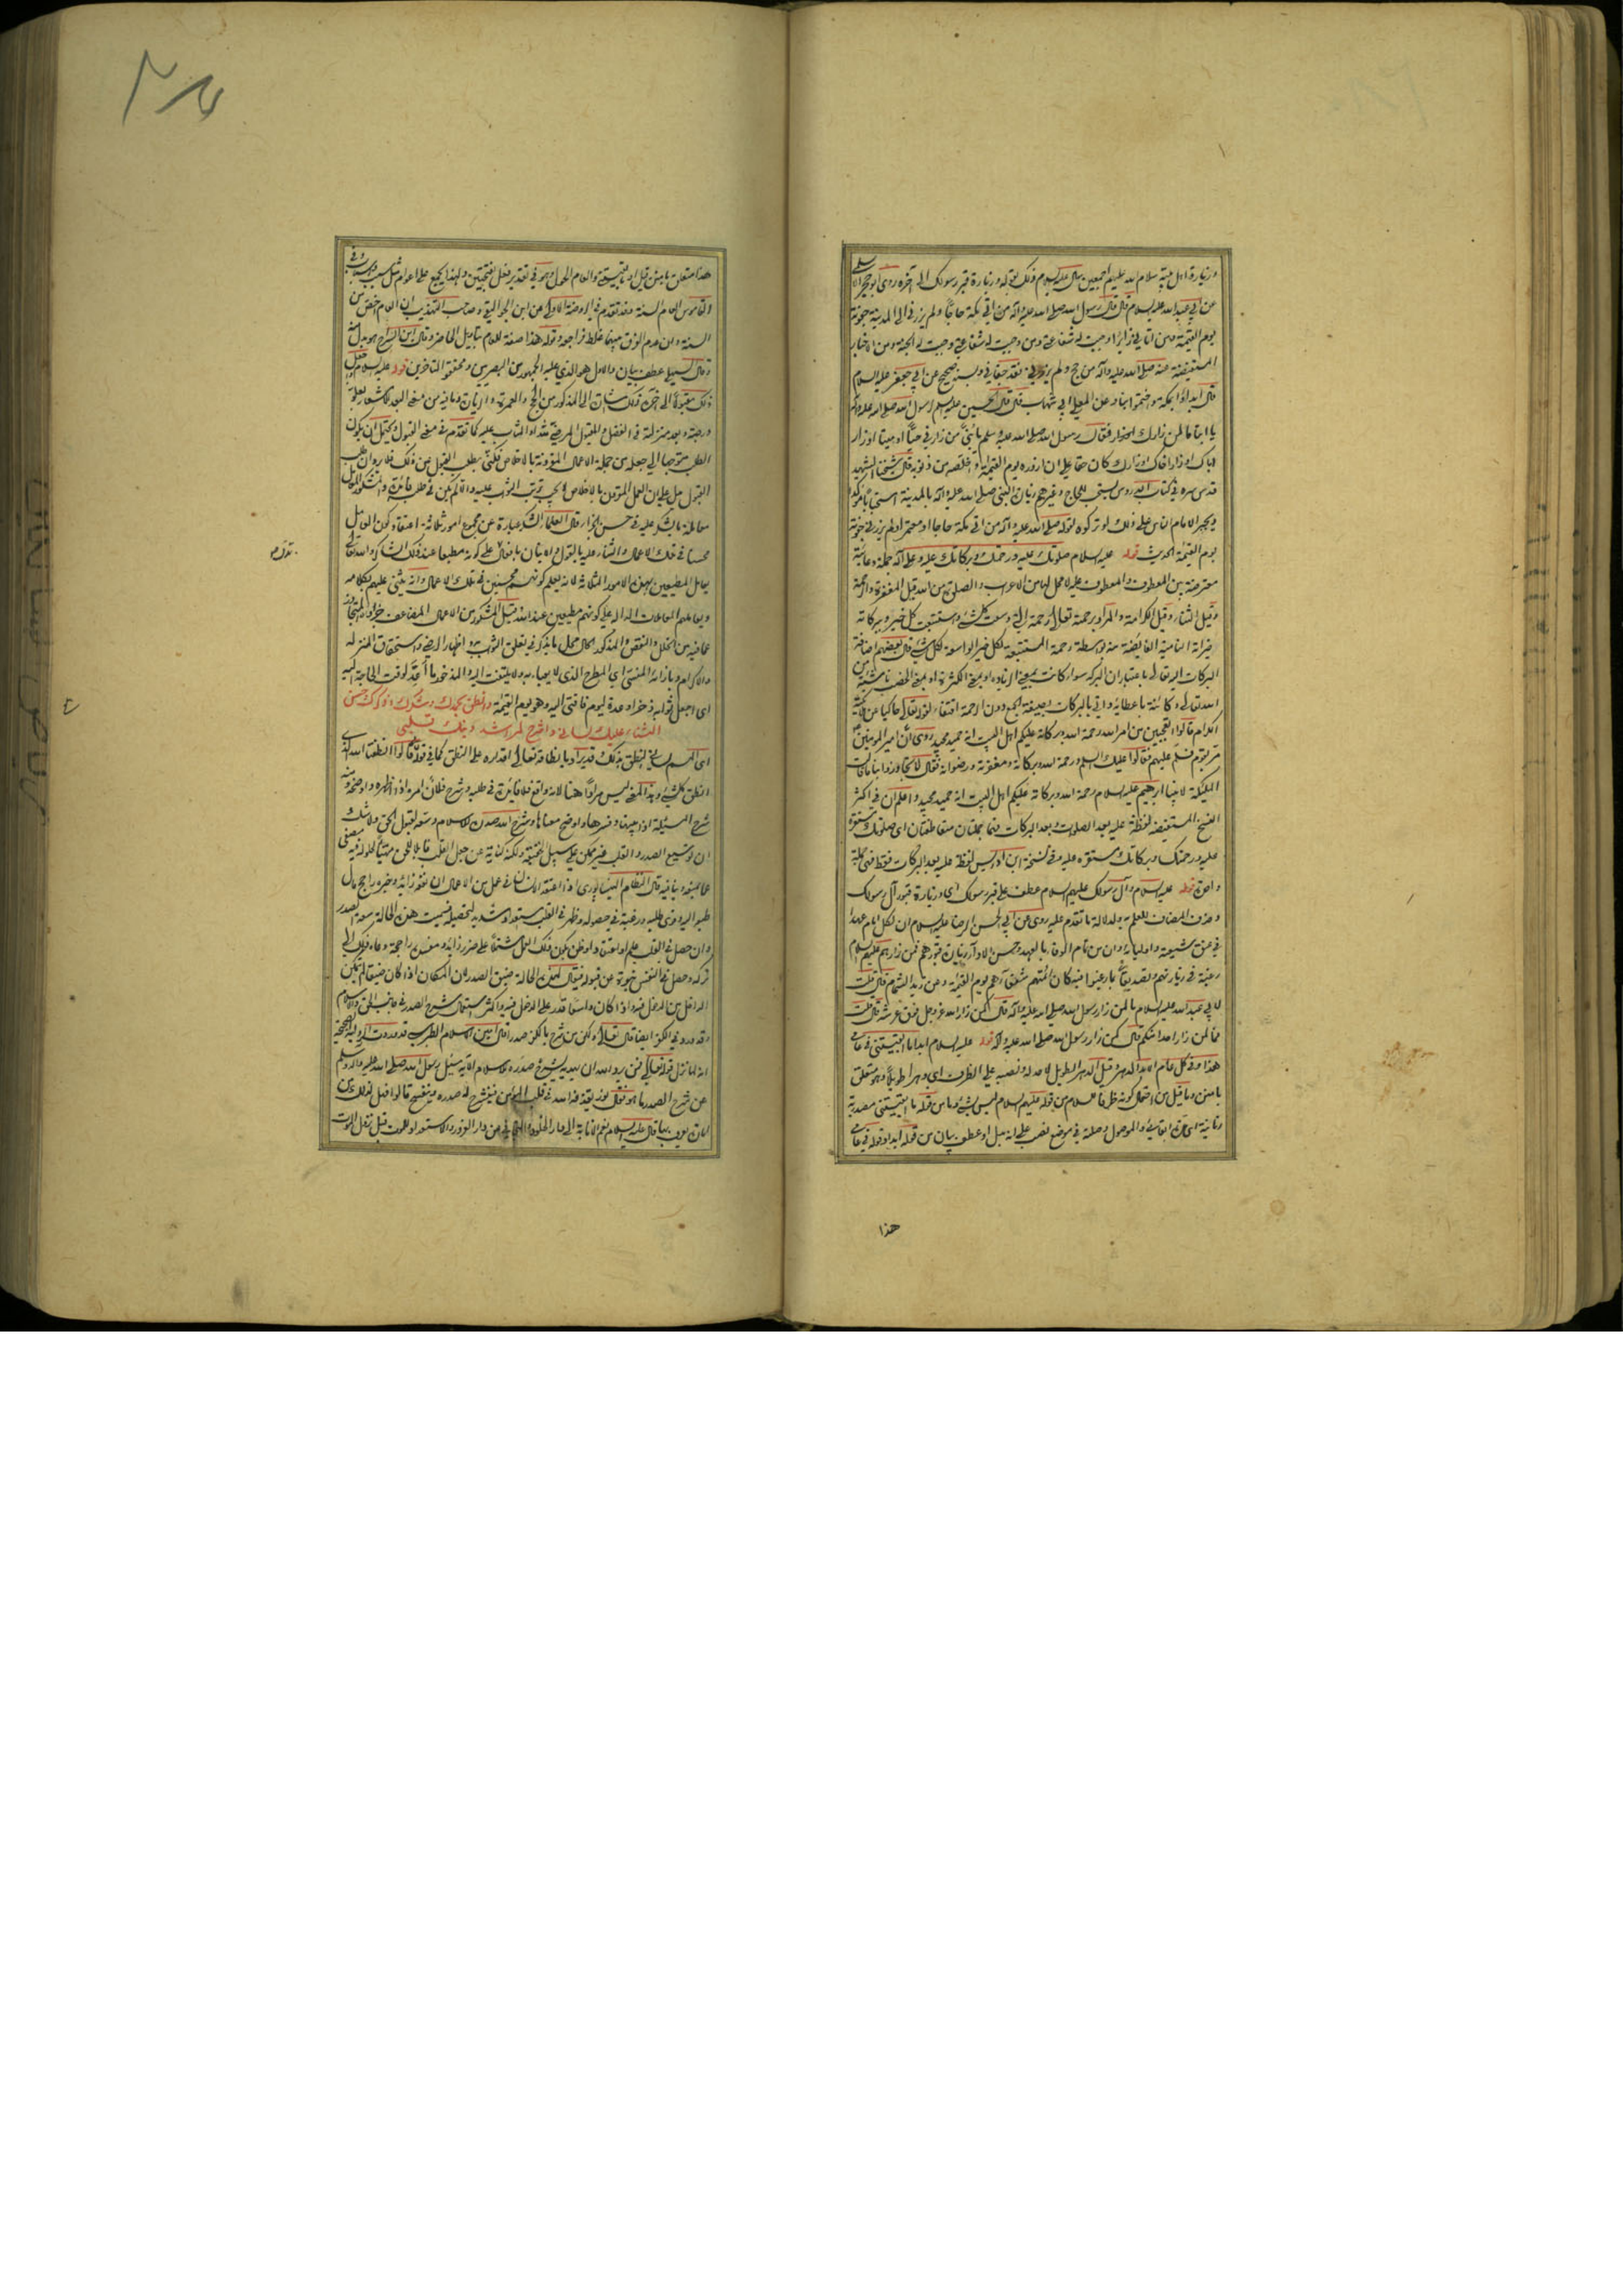 وزيارة اهل بيته سلام الله عليهم اجمعين سأل عليه السلام ذلك بقوله وزيارة قبر رسولك الى آخره روى ابو حجر الاسلمي
عن ابي عبد الله عليه السلام قال قال رسول الله صلى الله عليه وآله من اتى مكة حاجا ولم يزرني الى المدينة جفوته
يوم القيمة ومن اتاني زايرا وجبت له شفاعتي ومن وجبت له شفاعتي وجبت له الجنة ومن الاخبار
المستفيضة عنه صلى الله عليه وآله من حج ولم يزرني فقد جفاني وبسند صحيح عن ابي جعفر عليه السلام
قال ابدأوا بمكة واختموا بنا وعن المعلى ابي شهاب قال قال الحسين عليه السلم لرسول الله صلى الله عليه وآله
يا ابتا ما لمن زارك فقال رسول الله صلى الله عليه وسلم يا بني من زارني حيا او ميتا او زار
اباك او زار اخاك او زارك كان حقا علي ان ازوره يوم القيمة واخلصه من ذنوبه قال شيخنا الشهيد
قدس سره في كتاب الدروس يستحب للحاج وغيرهم زيارة النبي صلى الله عليه وآله بالمدينة استحبابا مؤكدا
ويجبر الامام الناس على ذلك لو تركوه لقوله صلى الله عليه وآله من اتى مكة حاجا ولم يزرني جفوته
يوم القيمة الحديث قوله عليه السلام صلوتك عليه ورحمتك وبركاتك عليه وعلى آله جملة دعائية
معترضة بين المعطوف والمعطوف عليه لا محل لها من الاعراب والصلوة من الله قيل المغفرة والرحمة
وقيل الثناء وقيل الكرامة والمراد برحمته تعالى رحمة التي وسعت كل شيء واستتبعت كل خير وبركاته
خيراته النامية الفايضة منه بواسطة رحمة المستتبعة لكل خير الواسعة لكل شيء قال بعضهم اضافة
البركات اليه تعالى باعتبار ان البركة سواء كانت بمعنى الزيادة او بمعنى الكثرة او بمعنى الخصب ناشئة من
الله تعالى وكائنة باعطائه واتي بالبركات بصيغة الجمع دون الرحمة اقتفاء لقوله تعالى حاكيا عن ملائكته
الكرام قالوا اتعجبين من امر الله رحمة الله وبركاته عليكم اهل البيت انه حميد مجيد روى ان امير المؤمنين
مر بقوم فسلم عليهم فقالوا عليك السلم ورحمة الله وبركاته ومغفرته ورضوانه فقال لا تجاوزوا بنا ما قالت
المليكة لابينا ابرهيم عليه السلام رحمة الله وبركاته عليكم اهل البيت انه حميد مجيد واعلم ان في اكثر
النسخ المستفيضة لفظة عليه بعد الصلوت وبعد البركات فهما جملتان متعاطفتان اي صلوتك مستقرة
عليه ورحمتك وبركاتك مستقرة عليه وفي نسخة ابن ادريس لفظة عليه بعد البركات فقط فهي جملة
واحدة قوله عليه السلام وآل رسولك عليهم السلام عطف على قبر رسولك اي وزيارة قبور آل رسولك
وحذف المضاف للعلم به ولدلالة ما تقدم عليه روى عن ابي الحسن الرضا عليه السلام ان لكل امام عهدا
في عنق شيعته واوليائه وان من تمام الوفاء بالعهد وحسن الاداء زيارة قبورهم فمن زارهم عليهم السلام
رغبة في زيارتهم وتصديقا بما رغبوا فيه كان ائمتهم شفعاءهم يوم القيمة وعن زيد الشحام قال قلت
لابي عبد الله عليه السلام ما لمن زار رسول الله صلى الله عليه وآله قال كمن زار الله عز وجل فوق عرشه قال قلت
فما لمن زار احدا منكم قال كمن زار رسول الله صلى الله عليه وآله قوله عليه السلام ابدا ما ابقيتني في عامي
هذا وفي كل عام الابد الدهر وقيل الدهر الطويل ونصبه على الظرف اي دهرا طويلا وهو متعلق
بامنن وما قيل من احتمال كونه ظرفا للسلام من قوله عليهم السلام ليس بشيء وما من قوله ما ابقيتني مصدرية
زمانية اي مدة ابقائي والموصول وصلته في موضع نصب على انه بدل او عطف بيان من قوله ابدا وقوله في عامي
هذا
هذا متعلق بامنن قيل او بابقيتني والعام الحول وهو في تقدير فعل بفتحتين ولهذا يجمع على اعوام مثل سبب واسباب وفي
القاموس العام السنة وقد تقدم في الروضة الاولى عن ابن الجواليقي وصاحب التهذيب ان العام اخص من
السنة وان عدم الفرق بينهما غلط فراجعه وقوله هذا صفة للعام بتأويل الحاضر وقال ابن السراج هو بدل منه
وقال السهيلي عطف بيان والاول هو الذي عليه الجمهور من البصريين ومحققو المتأخرين قوله عليه السلام واجعل
ذلك مقبولا الى آخره ذلك اشارة الى المذكور من الحج والعمرة والزيارة وما فيه من معنى البعد للاشعار بعلو
درجته وبعد منزلته في الفضل والمقبول المرضي عند الله المثاب عليه كما تقدم في معنى القبول ويحتمل ان يكون
الطلب متوجها الى جعله من جملة الاعمال المقرونة بالاخلاص فكنى بطلب القبول عن ذلك فلا يرد ان طلب
القبول يدل على ان العمل المقرون بالاخلاص لا يجب ترتب الثواب عليه والا لم يكن في طلبه فائدة والمشكور المقابل
معاملة بالشكر عليه في حسن الجزاء قال العلماء الشكر عبارة عن مجموع امور ثلاثة اعتقاد كون الفاعل
محسنا في تلك الاعمال والثناء عليه بالقول والاتيان بافعال على كونه مطيعا عند ذلك الشاكر والله تعالى
يعامل المطيعين بهذه الامور الثلاثة لانه يعلم كونهم محسنين في تلك الاعمال وانه يثني عليهم بكلامه
ويعاملهم المعاملات الدالة على كونهم مطيعين عند الله وقيل المشكور من الاعمال المضاعف جزاؤه المتجاوز
عما فيه من الخلل والنقص والمذكور الحال محل ما يذكر في تعلق الثواب به واظهار الرضى واستحقاق المنزلة
والاكرام وبازائه المنسي اي المطرح الذي لا يعبأ به ولا يلتفت اليه والمذخور ما اعد لوقت الحاجة اليه
اي اجعل ثوابه ذخرا وعدة ليوم فاقتي اليه وهو يوم القيمة وانطق بحمدك وشكرك وذكرك وحسن
الثناء عليك لساني واشرح لمراشد دينك قلبي
اي الهم لساني النطق بذلك قد يراد بانطاقه تعالى اقداره على النطق كما في قوله قالوا انطقنا الله الذي
انطق كل شيء وهذا المعنى ليس مرادا هنا لانه واقع فلا فائدة في طلبه وشرح فلان امره اذا اظهره واوضحه ومنه
شرح المسئلة اذا بينها وفسرها واوضح معناها وشرح الله صدره للاسلام وسعه لقبول الحق ولا شك
ان توسيع الصدر والقلب غير ممكن على سبيل الحقيقة ولكنه كناية عن جعل القلب قابلا للحق مهيئا لحلوله فيه مصفى
عما يمنعه وينافيه قال النظام النيسابوري اذا اعتقد الانسان في عمل من الاعمال ان نفعه زائد وخيره راجح مال
طبعه اليه وقوى طلبه ورغبته في حصوله وظهر في القلب استعداد شديد لتحصيله فسميت هذه الحالة سعة الصدر
وان حصل في القلب علم او اعتقاد او ظن بكون ذلك العمل مشتملا على ضرر زائد ومفسدة راجحة دعاه ذلك الى
تركه وحصل في النفس نبوة عن قبوله فيقال لهذه الحالة ضيق الصدر لان المكان اذا كان ضيقا لم يتمكن
الداخل من الدخول فيه واذا كان واسعا قدر على الدخول فيه واكثر استعمال شرح الصدر في جانب الحق والاسلام
وقد ورد في الكفر ايضا قال تعالى ولكن من شرح بالكفر صدرا قال امين الاسلام الطبرسي قد وردت الرواية الصحيحة
انه لما نزل قوله تعالى فمن يرد الله ان يهديه يشرح صدره للاسلام الآية سئل رسول الله صلى الله عليه وآله وسلم
عن شرح الصدر ما هو فقال نور يقذفه الله في قلب المؤمن فينشرح له صدره وينفسح قالوا فهل لذلك من
امارة يعرف بها قال عليه السلام نعم الانابة الى دار الخلود والتجافي عن دار الغرور والاستعداد للموت قبل نزول الموت